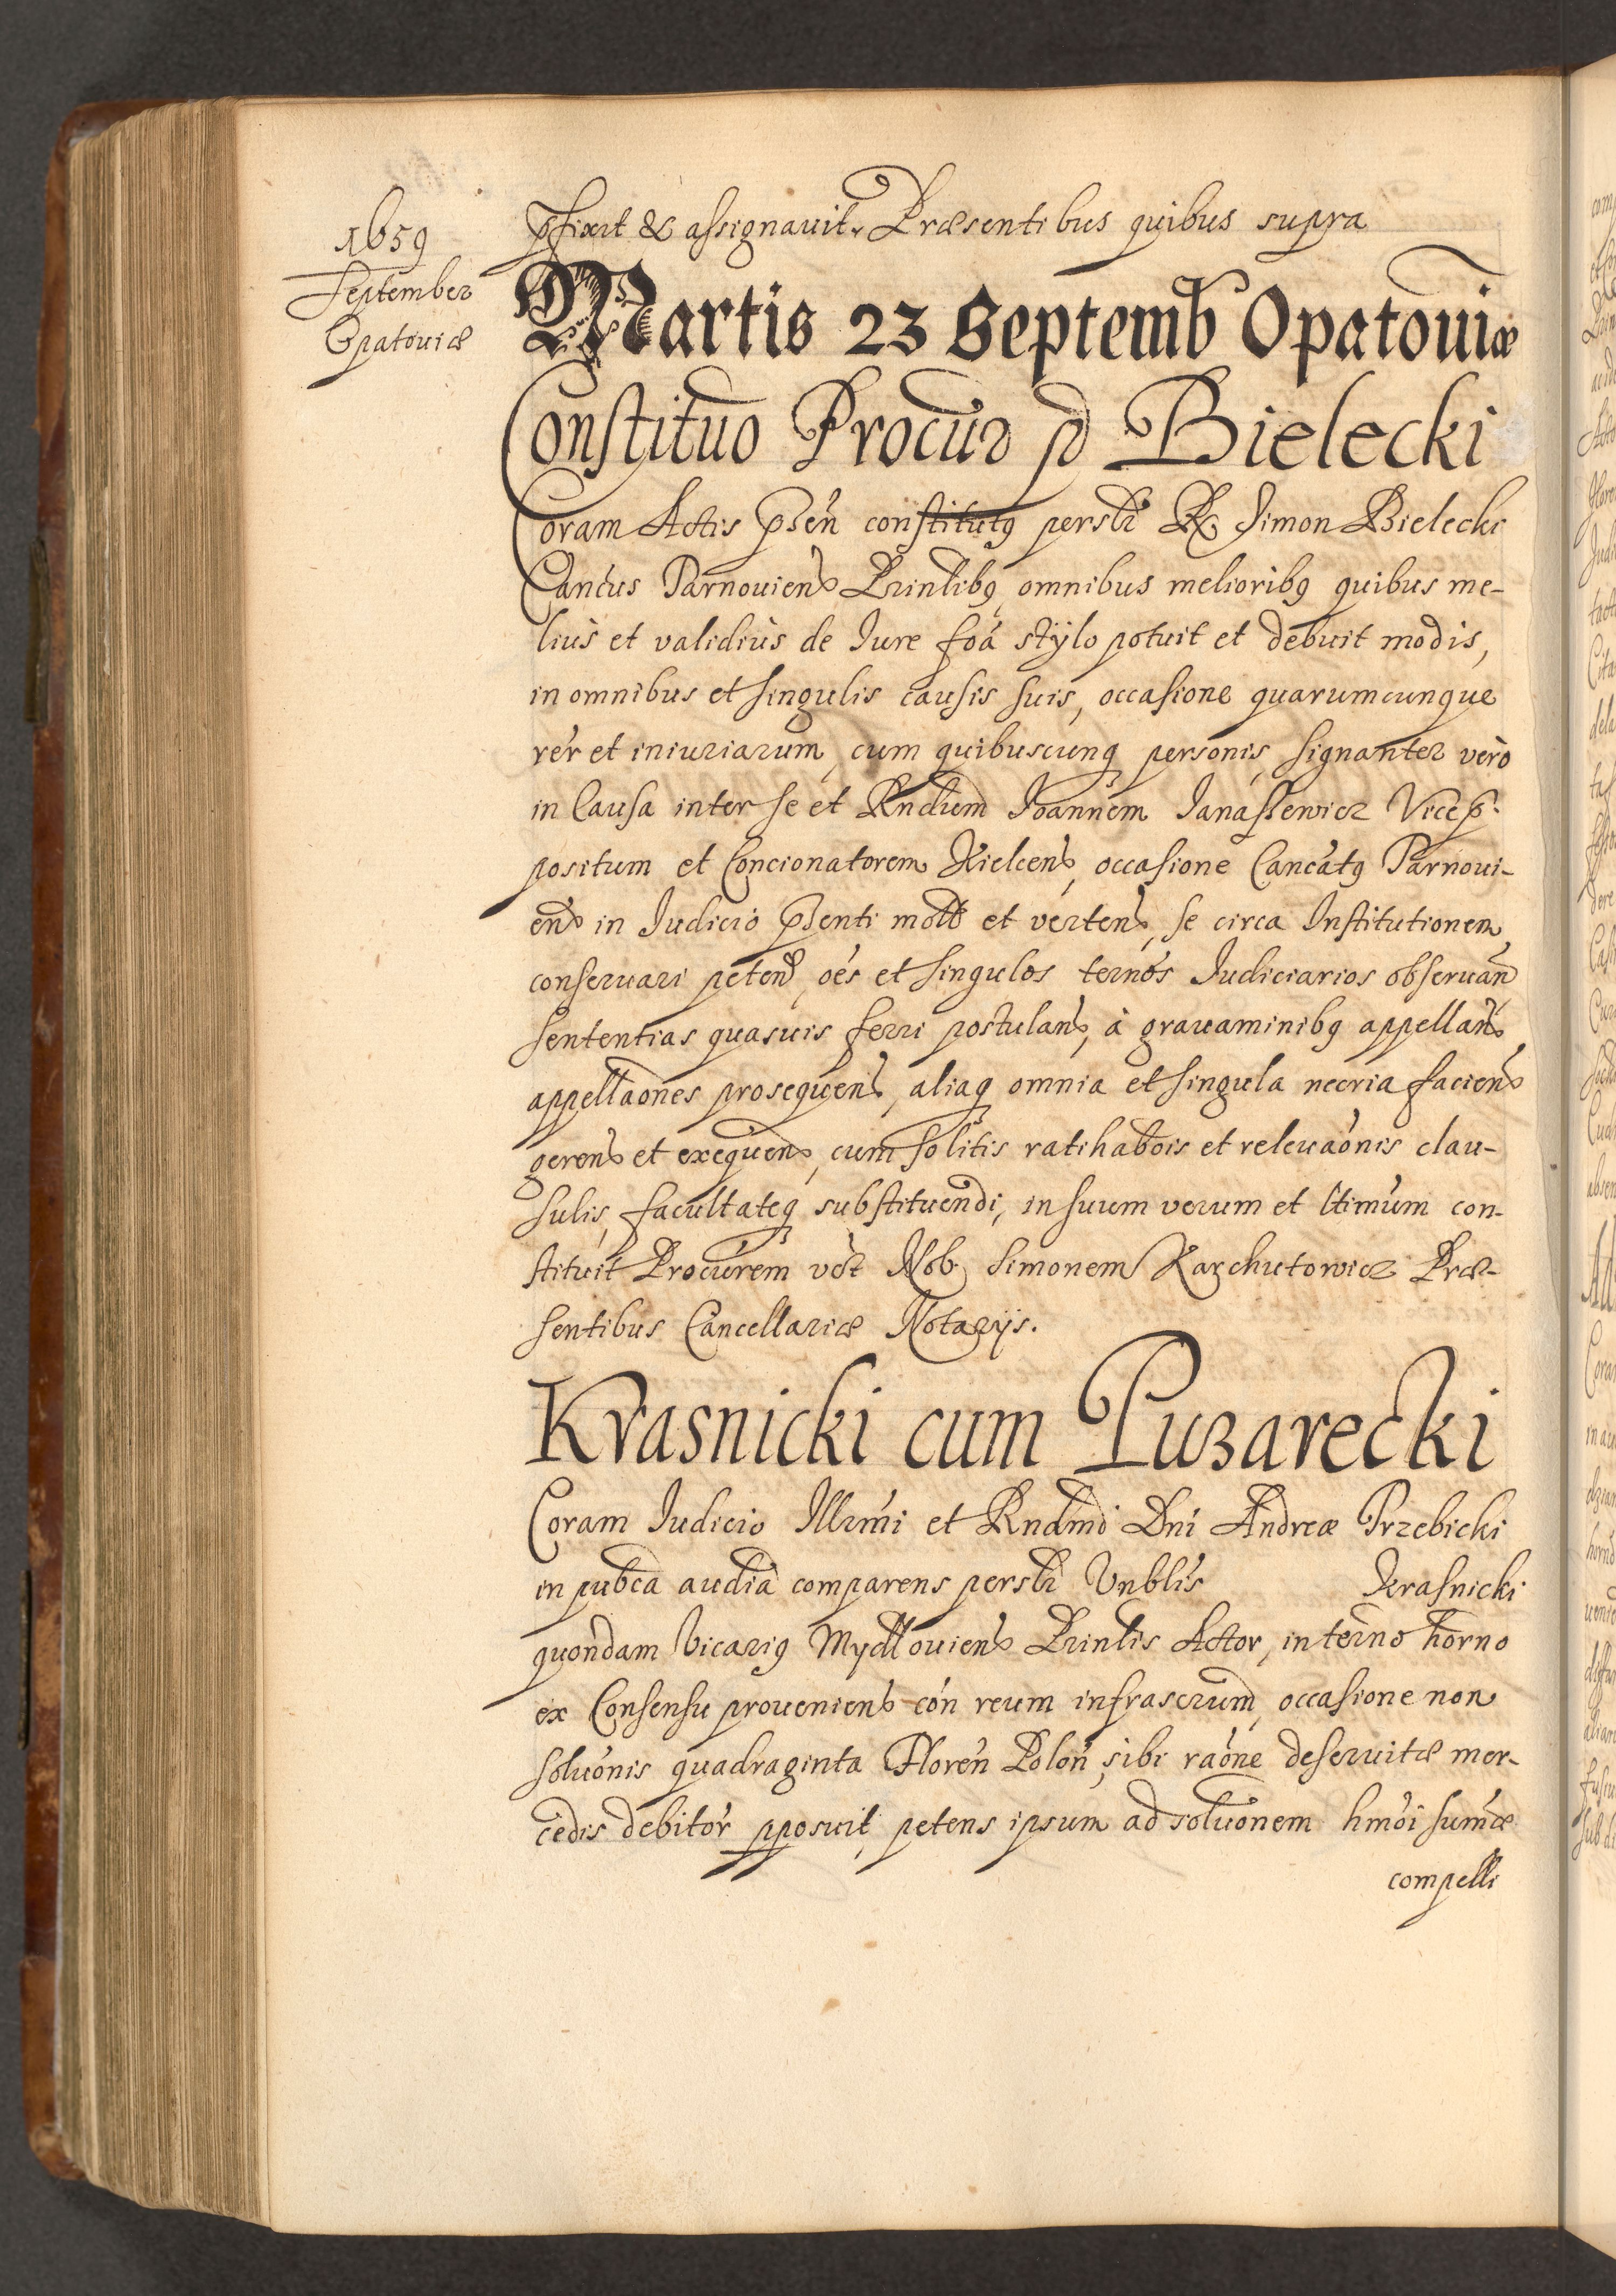 1659
September
Opatouiæ
pfixit & assignauit. Præsentibus quibus supra
Martis 23 Septemb Opatouiæ
Constituo Procur p Bielecki
Coram Actis pñsen constitutq persłr R. Simon Bielecki
Cancus Tarnouiens Prinlibq omnibus melioribq quibus me-
liùs et validiùs de Iure foã stÿlo potuit et debuit modis,
in omnibus et singulis causis suis, occasione quarumcunque
rer et iniuriarum, cum quibuscunq personis, signanter verò
in Causa inter se et Rndum Ioannem Ianassewicz Vicep.
positum et Concionatorem Kielcens, occasione Cancatq Tarnoui-
ens in Iudicio psenti mott et vertens, se circa Institutionem
conseruari petend, oés et singulos ternos Iudiciarios obseruan
sententias quasuis ferri postulans, à grauaminibq appellans
appellaones prosequens, aliaq omnia et singula necria faciens
gerens et exequens, cum solitis ratihabois et releuaonis clau-
sulis, facultateq substituendi, in suum verum et ltimum con-
stituit Procurem vdt Nob. Simonem Karchutowicz Præ-
sentibus Cancellariæ Notarijs.
Krasnicki cum Puzarecki
Coram Iudicio Illrmi et Rndmi Dni Andreæ Trzebicki
in pubca audia comparens persłr Vnblis Krasnicki
quondam Vicariq Mydlouiens Prinlis Actor, in terno horno
ex Consensu proueniens con reum infrascrum, occasione non
soluonis quadraginta Floren Polon sibi raone deseruitæ mer-
cedis debitor pposuit, petens ipsum ad soluonem hmoi sumæ
compelli